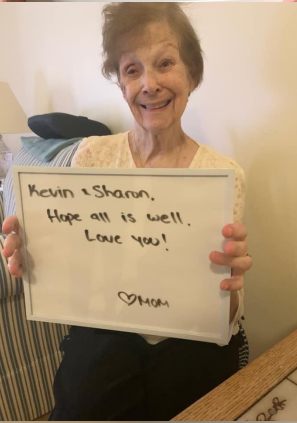 Kevin & Sharon,
Hope all is well.
Love you!
♡MOM